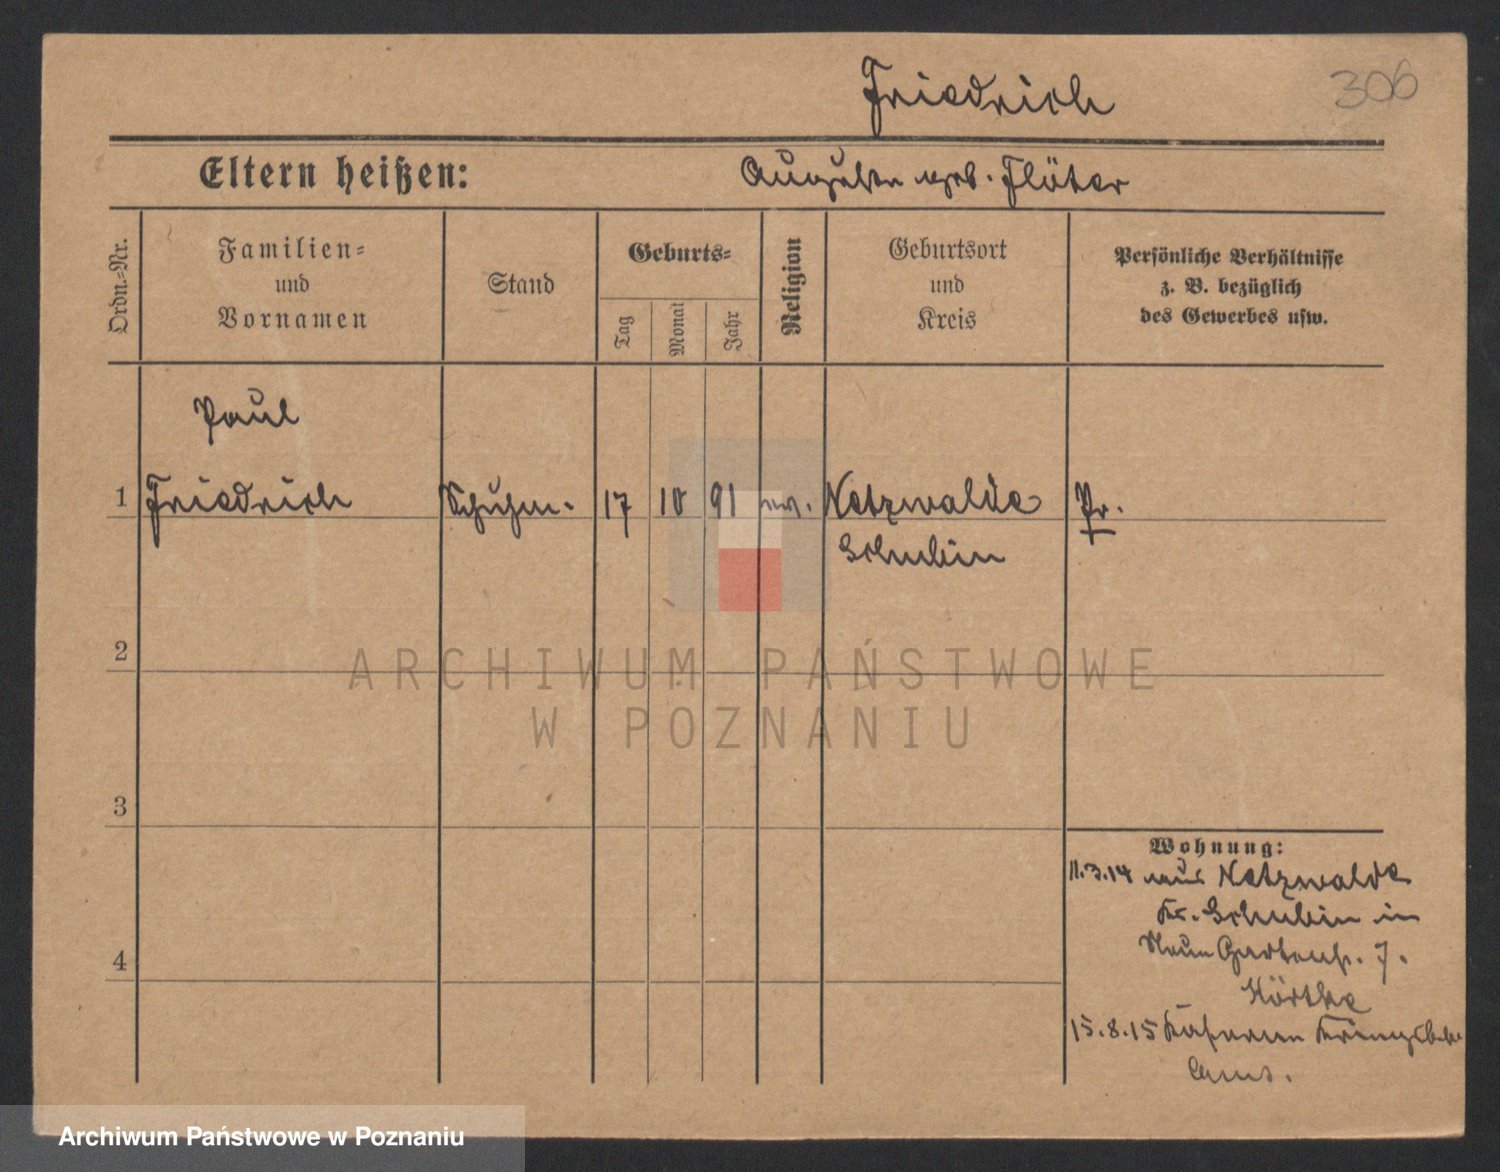 306
Friedrich
Eltern heißen:
Auguste geb. Flöter
Ordn.=Nr.
Familien=
und
Vornamen
Stand
Geburts=
Tag
Monat
Jahr
Religion
Geburtsort
und
Kreis
Persönliche Verhältnisse
z. B. bezüglich
des Gewerbes usw.
Paul
1 Friedrich Schuhm. 17 10 91 ev. Netzwalde Pr.
Schubin
2
3
4
Wohnung:
11.3.14 aus Netzwalde
Kr. Schubin in
Neue Gartenstr. 7.
15.8.15 Kaserne
ARCHIWUM PAŃSTWOWE
W POZNANIU
Archiwum Państwowe w Poznaniu